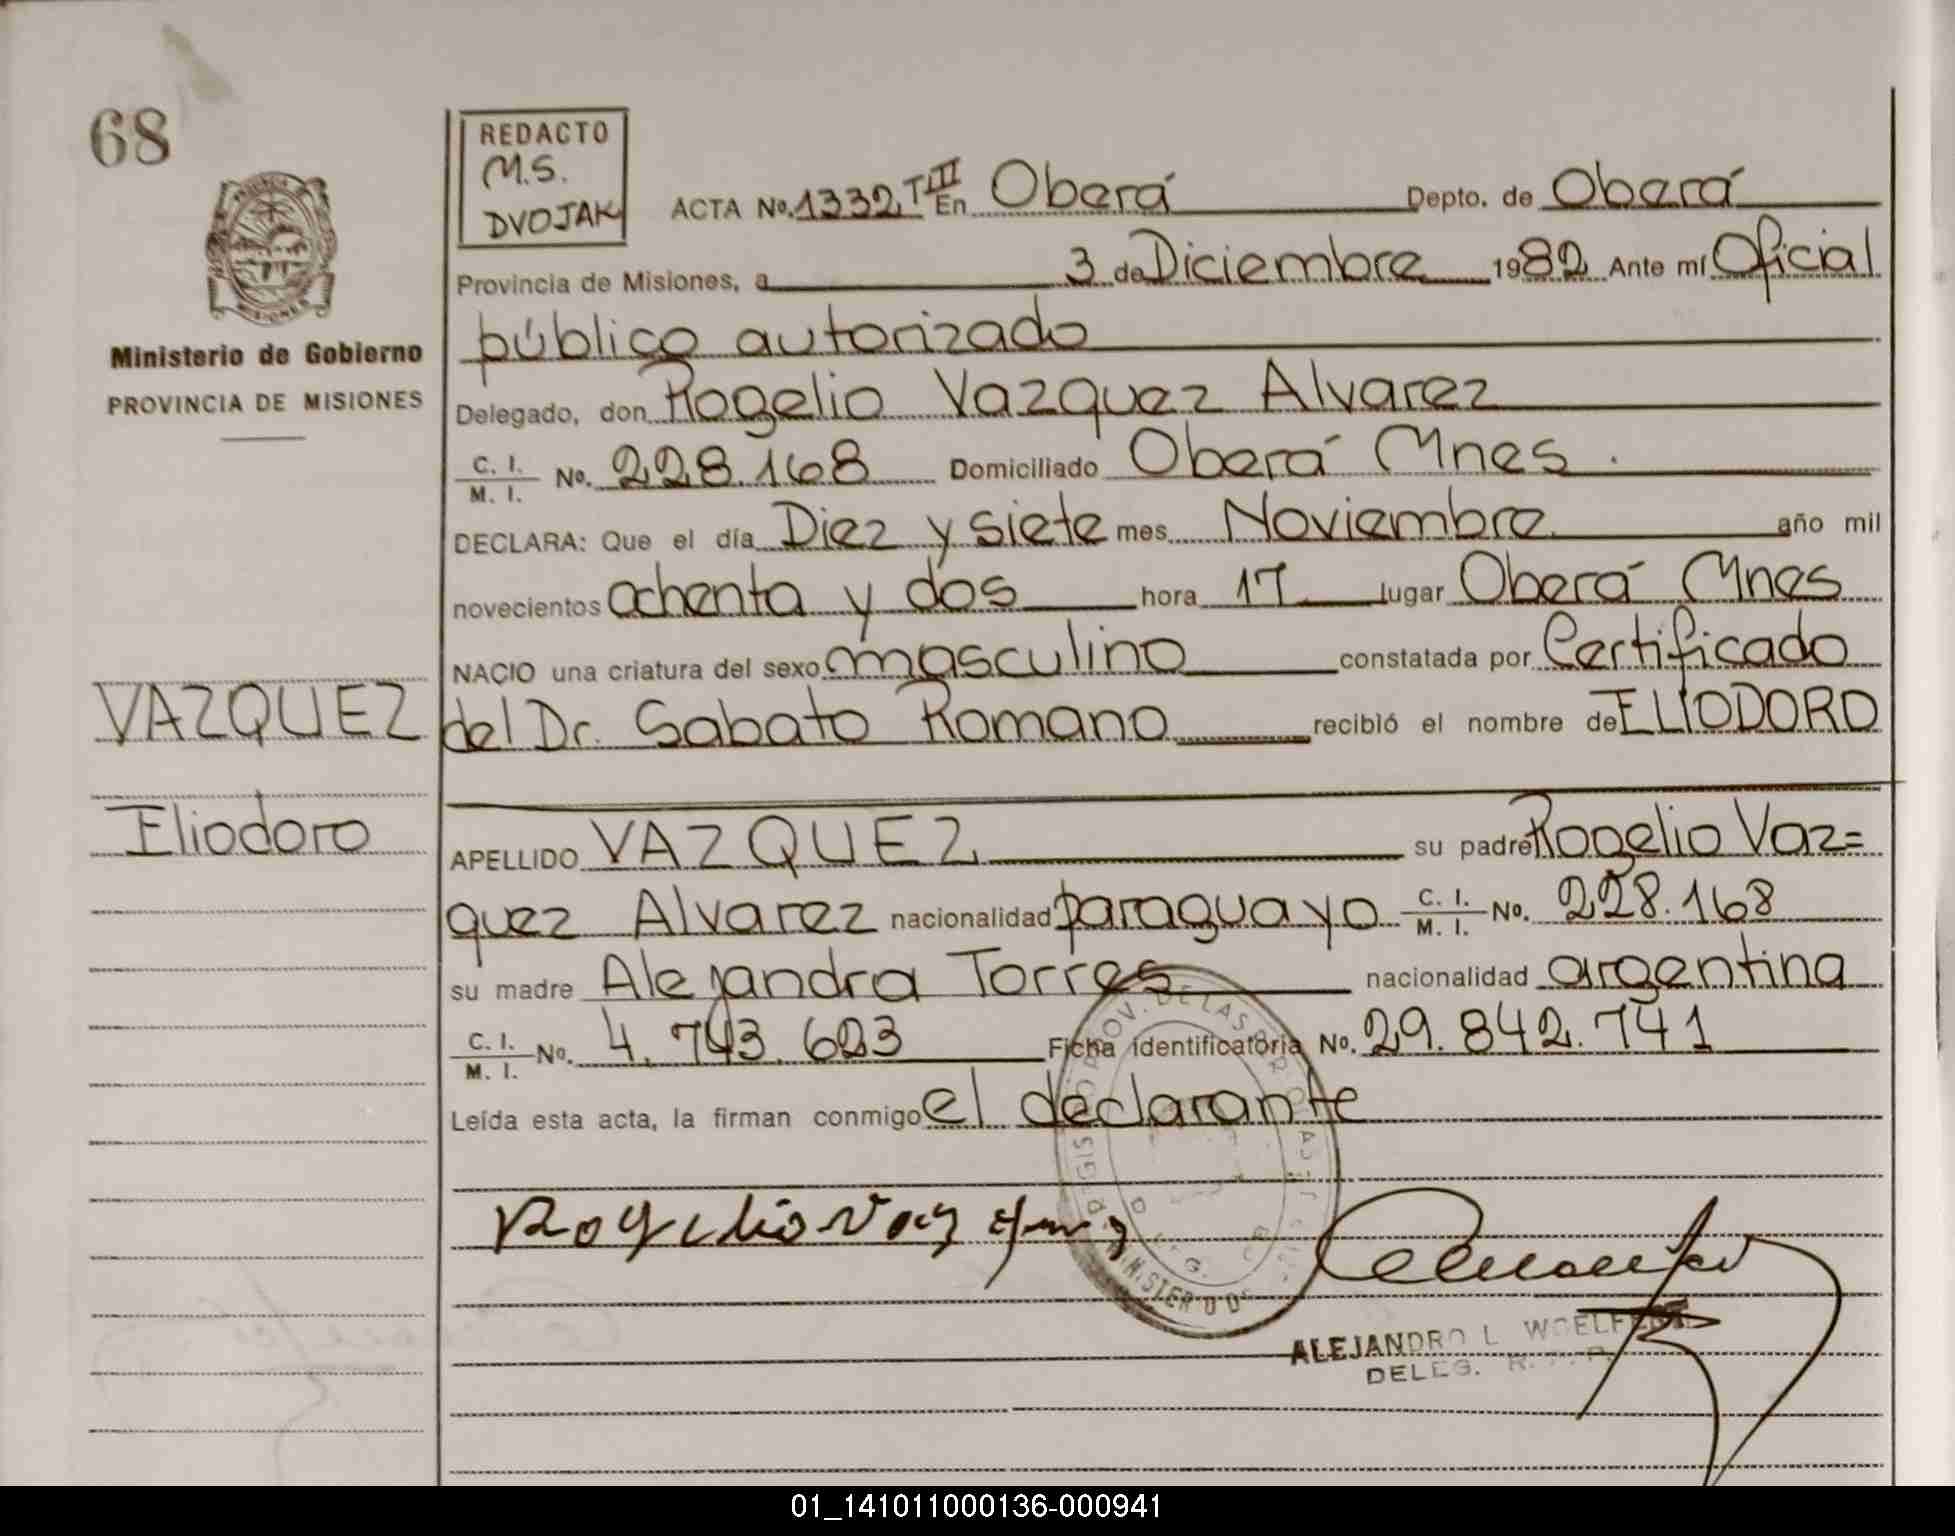 68
REDACTO
M.S.
DVOJAK
ACTA No. 1332 T III En Oberá Depto. de Oberá
Provincia de Misiones, a 3 de Diciembre 1982 Ante mí Oficial
público autorizado
Ministerio de Gobierno
PROVINCIA DE MISIONES
Delegado, don Rogelio Vazquez Alvarez
C. I. / M. I. No. 228.168 Domiciliado Oberá Mnes.
DECLARA: Que el día Diez y siete mes Noviembre año mil
novecientos ochenta y dos hora 17 lugar Oberá Mnes
NACIO una criatura del sexo masculino constatada por Certificado
del Dr. Sabato Romano recibió el nombre de ELIODORO
VAZQUEZ
Eliodoro
APELLIDO VAZQUEZ su padre Rogelio Vaz=
quez Alvarez nacionalidad paraguayo C. I. / M. I. No. 228.168
su madre Alejandra Torres nacionalidad argentina
C. I. / M. I. No. 4.743.623 Ficha identificatoria No. 29.842.741
Leída esta acta, la firman conmigo el declarante
Rogelio Vazquez
ALEJANDRO L. WOELFERT
DELEG. R.
01_141011000136-000941